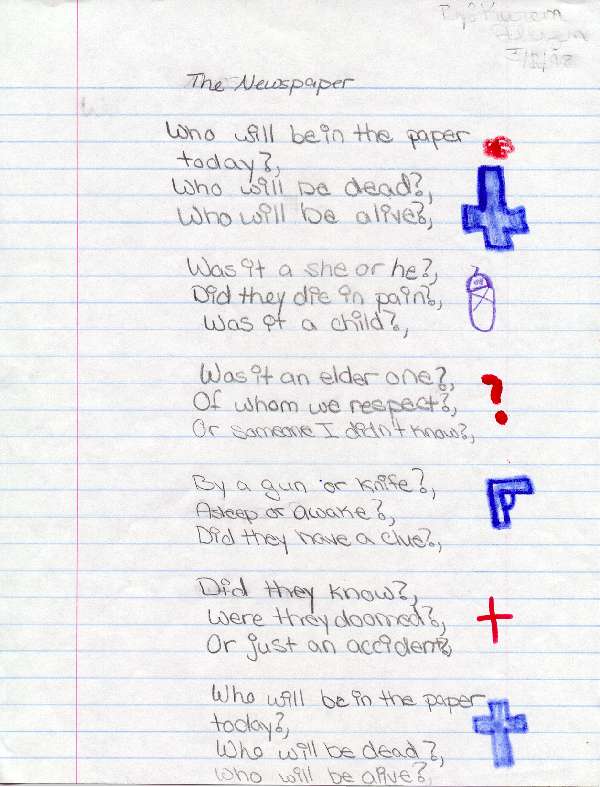 The Newspaper
Who will be in the paper
today?,
Who will be dead?,
Who will be alive?,
Was it a she or he?,
Did they die in pain?,
Was it a child?,
Was it an elder one?,
Of whom we respect?,
Or someone I didn't know?,
?
By a gun or knife?,
Asleep or awake?,
Did they have a clue?,
Did they know?,
Were they doomed?,
Or just an accident?,
Who will be in the paper
today?,
Who will be dead?,
Who will be alive?,